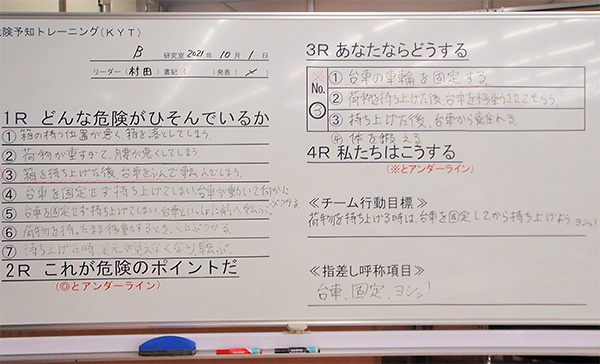 危険予知トレーニング(KYT)
B 研究室 2021年 10月 1日
リーダー(村田) 書記( ) 発表( 〆 )
1R どんな危険がひそんでいるか
① 箱の持つ位置が悪く、箱を落としてしまう。
② 荷物が重すぎて、腰が悪くしてしまう。
③ 箱を持ち上げた後、台車をふんで転んでしまう。
④ 台車を固定せず持ち上げてしまい、台車が動いて何かにぶつかる。
⑤ 台車を固定せず持ち上げてしまい、台車といっしょに前へ転ぶ。
⑥ 荷物を持ったまま移動するとき、人にぶつかる。
⑦ 持ち上げた時、足元が見えなくなり、転ぶ。
2R これが危険のポイントだ
(◎とアンダーライン)
3R あなたならどうする
※
No.
③
① 台車の車輪を固定する
② 荷物を持ち上げた後、台車を移動させてもらう。
③ 持ち上げた後、台車から離れる。
④ 体を鍛える
4R 私たちはこうする
(※とアンダーライン)
≪チーム行動目標≫
荷物を持ち上げる時は、台車を固定してから持ち上げよう、ヨシ!
≪指差し呼称項目≫
台車、固定、ヨシ!